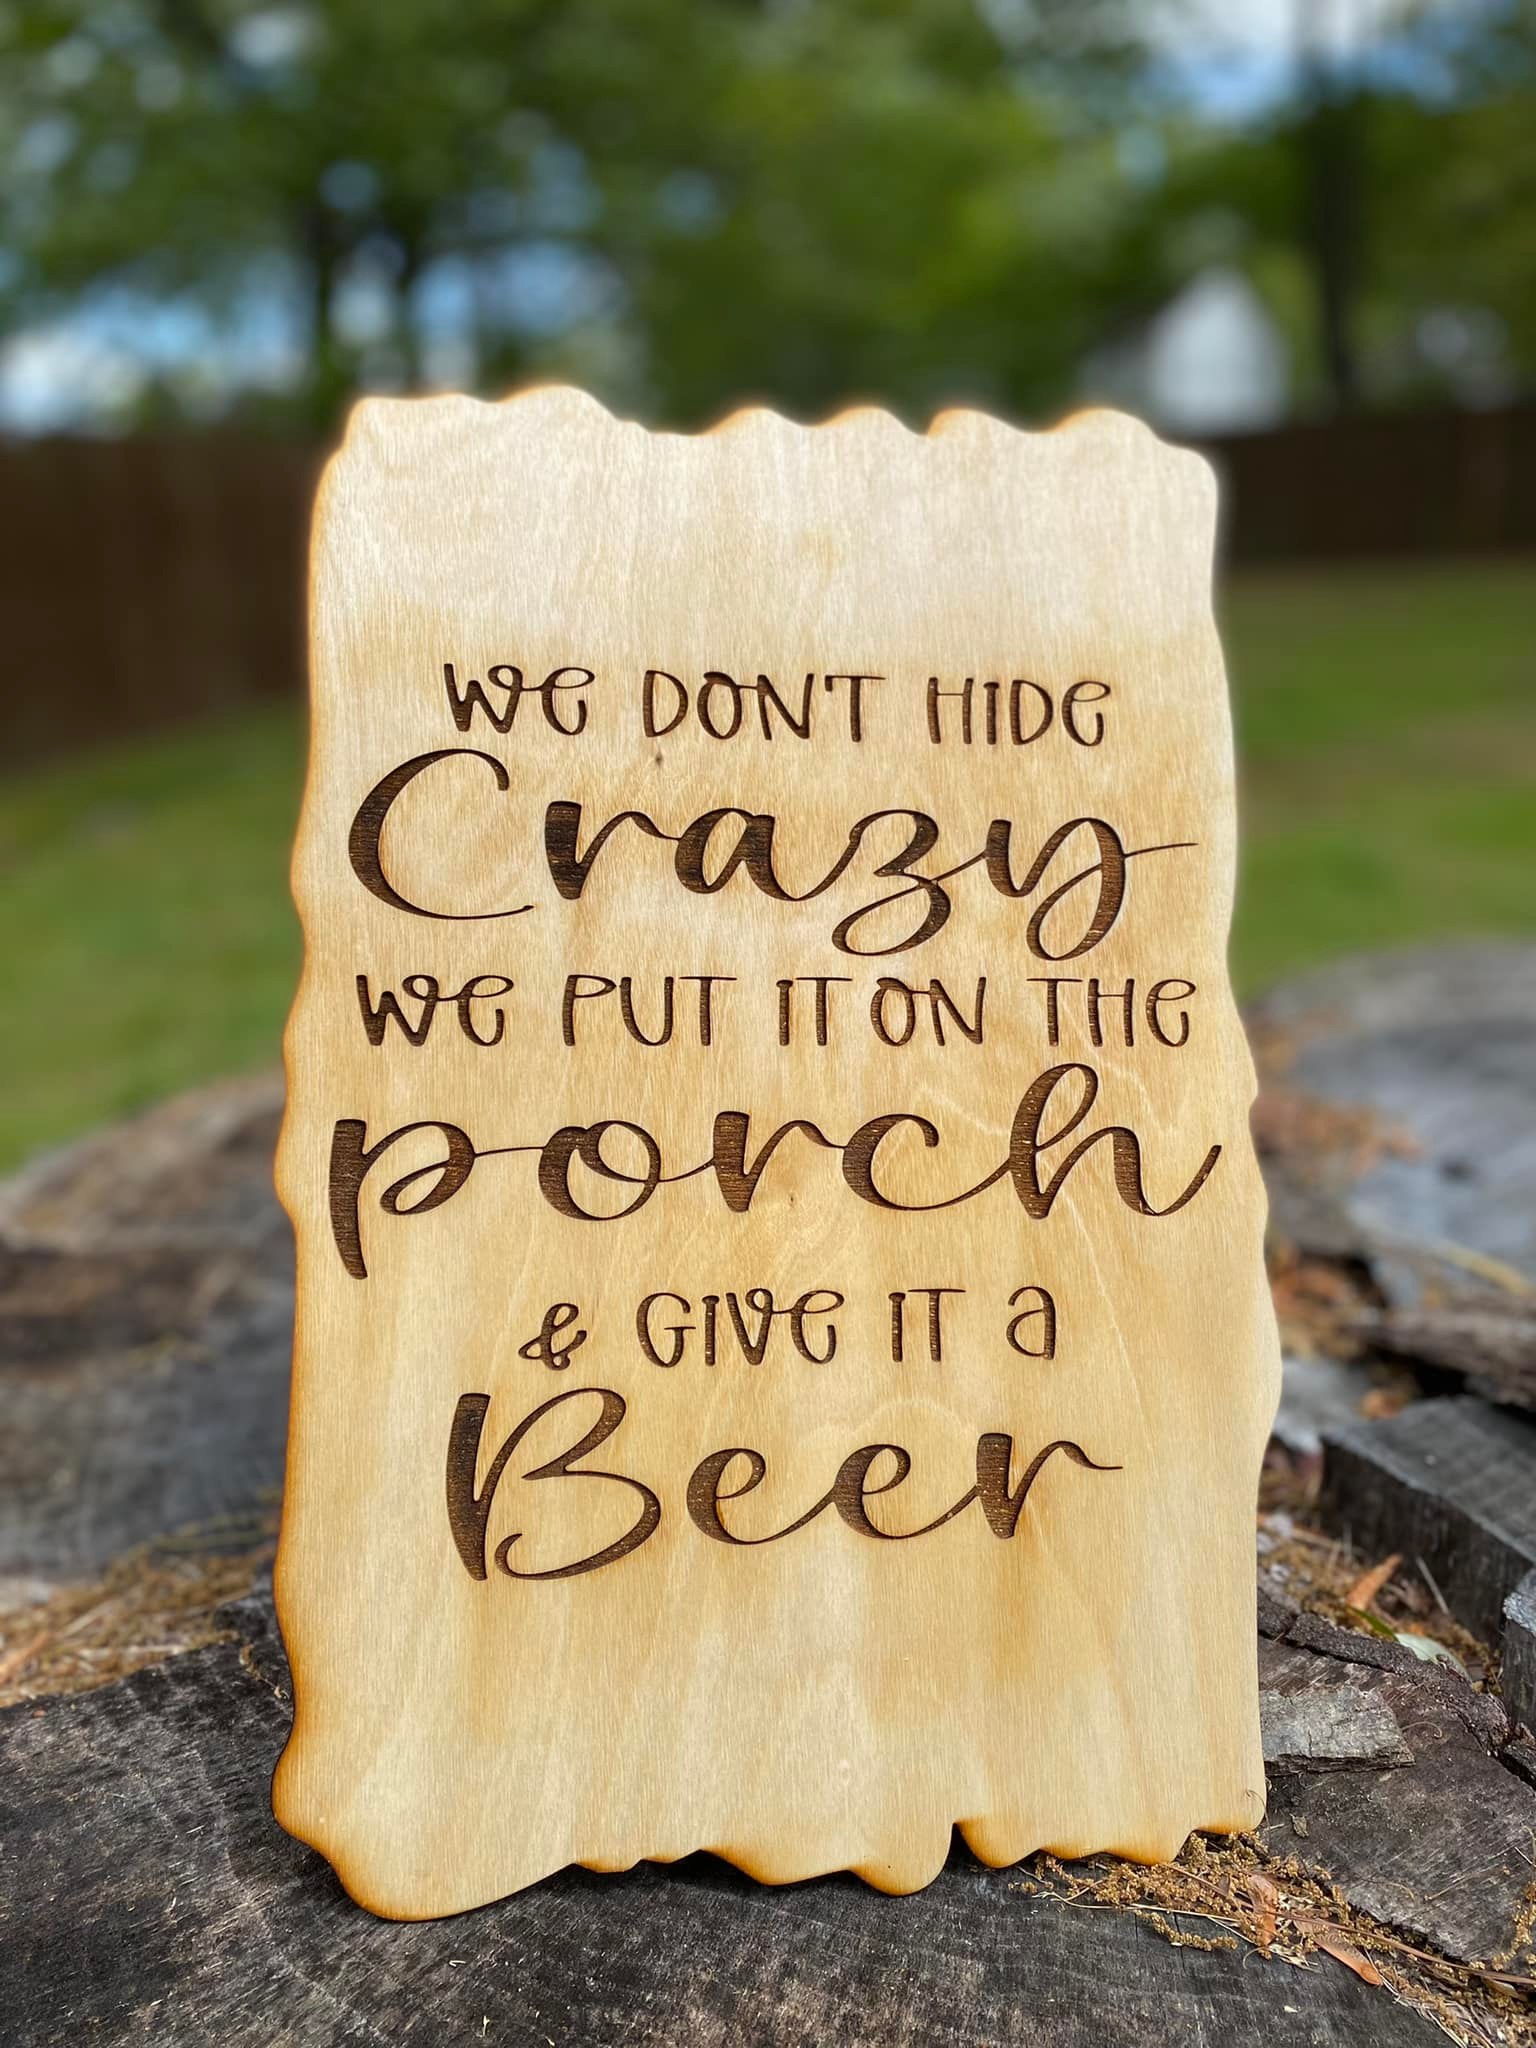 We DON'T HIDe
Crazy
We PUT IT ON THe
porch
& GIVe IT a
Beer